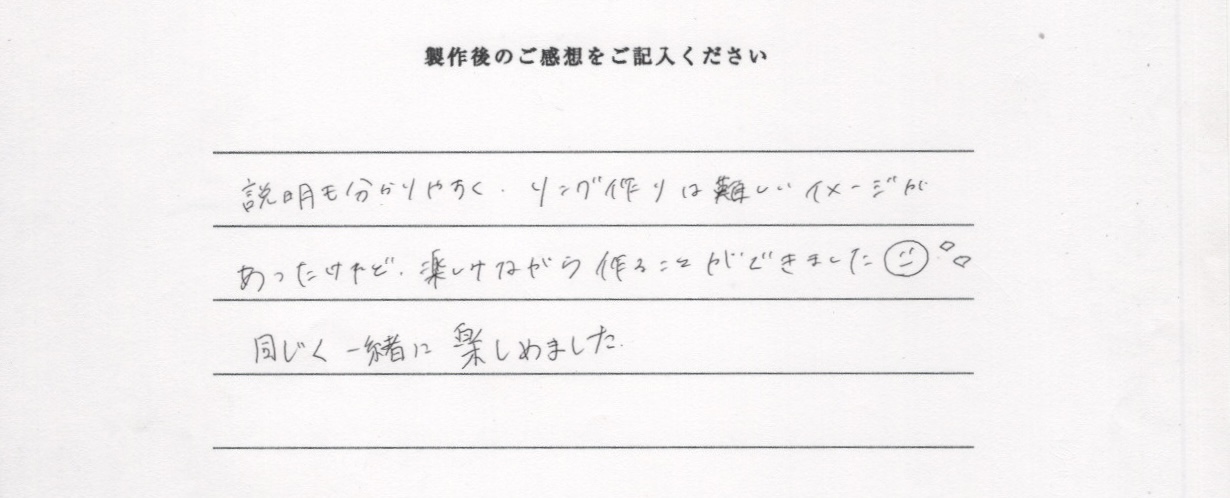 製作後のご感想をご記入ください
説明も分かりやすく、リング作りは難しいイメージが
あったけれど、楽しけながら作ることができました
同じく一緒に楽しめました.